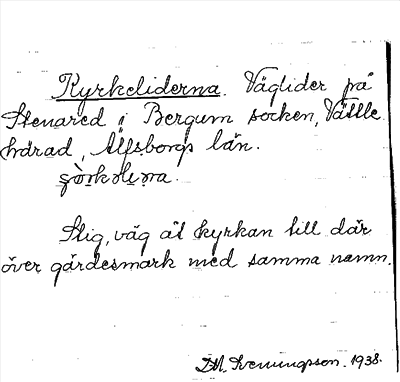 Kyrkeliderna. Väglider på
Stenared i Bergum socken, Vättle
härad, Älfsborgs län.
Stig, väg åt kyrkan till där
över gärdesmark med samma namn.
1938.